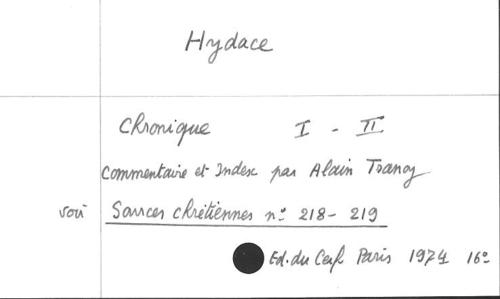 Hydace
Chronique I - II
Commentaire et Index par Alain Tranoy
voir Sources chrétiennes n° 218 - 219
Ed. du Cerf Paris 1974 16°